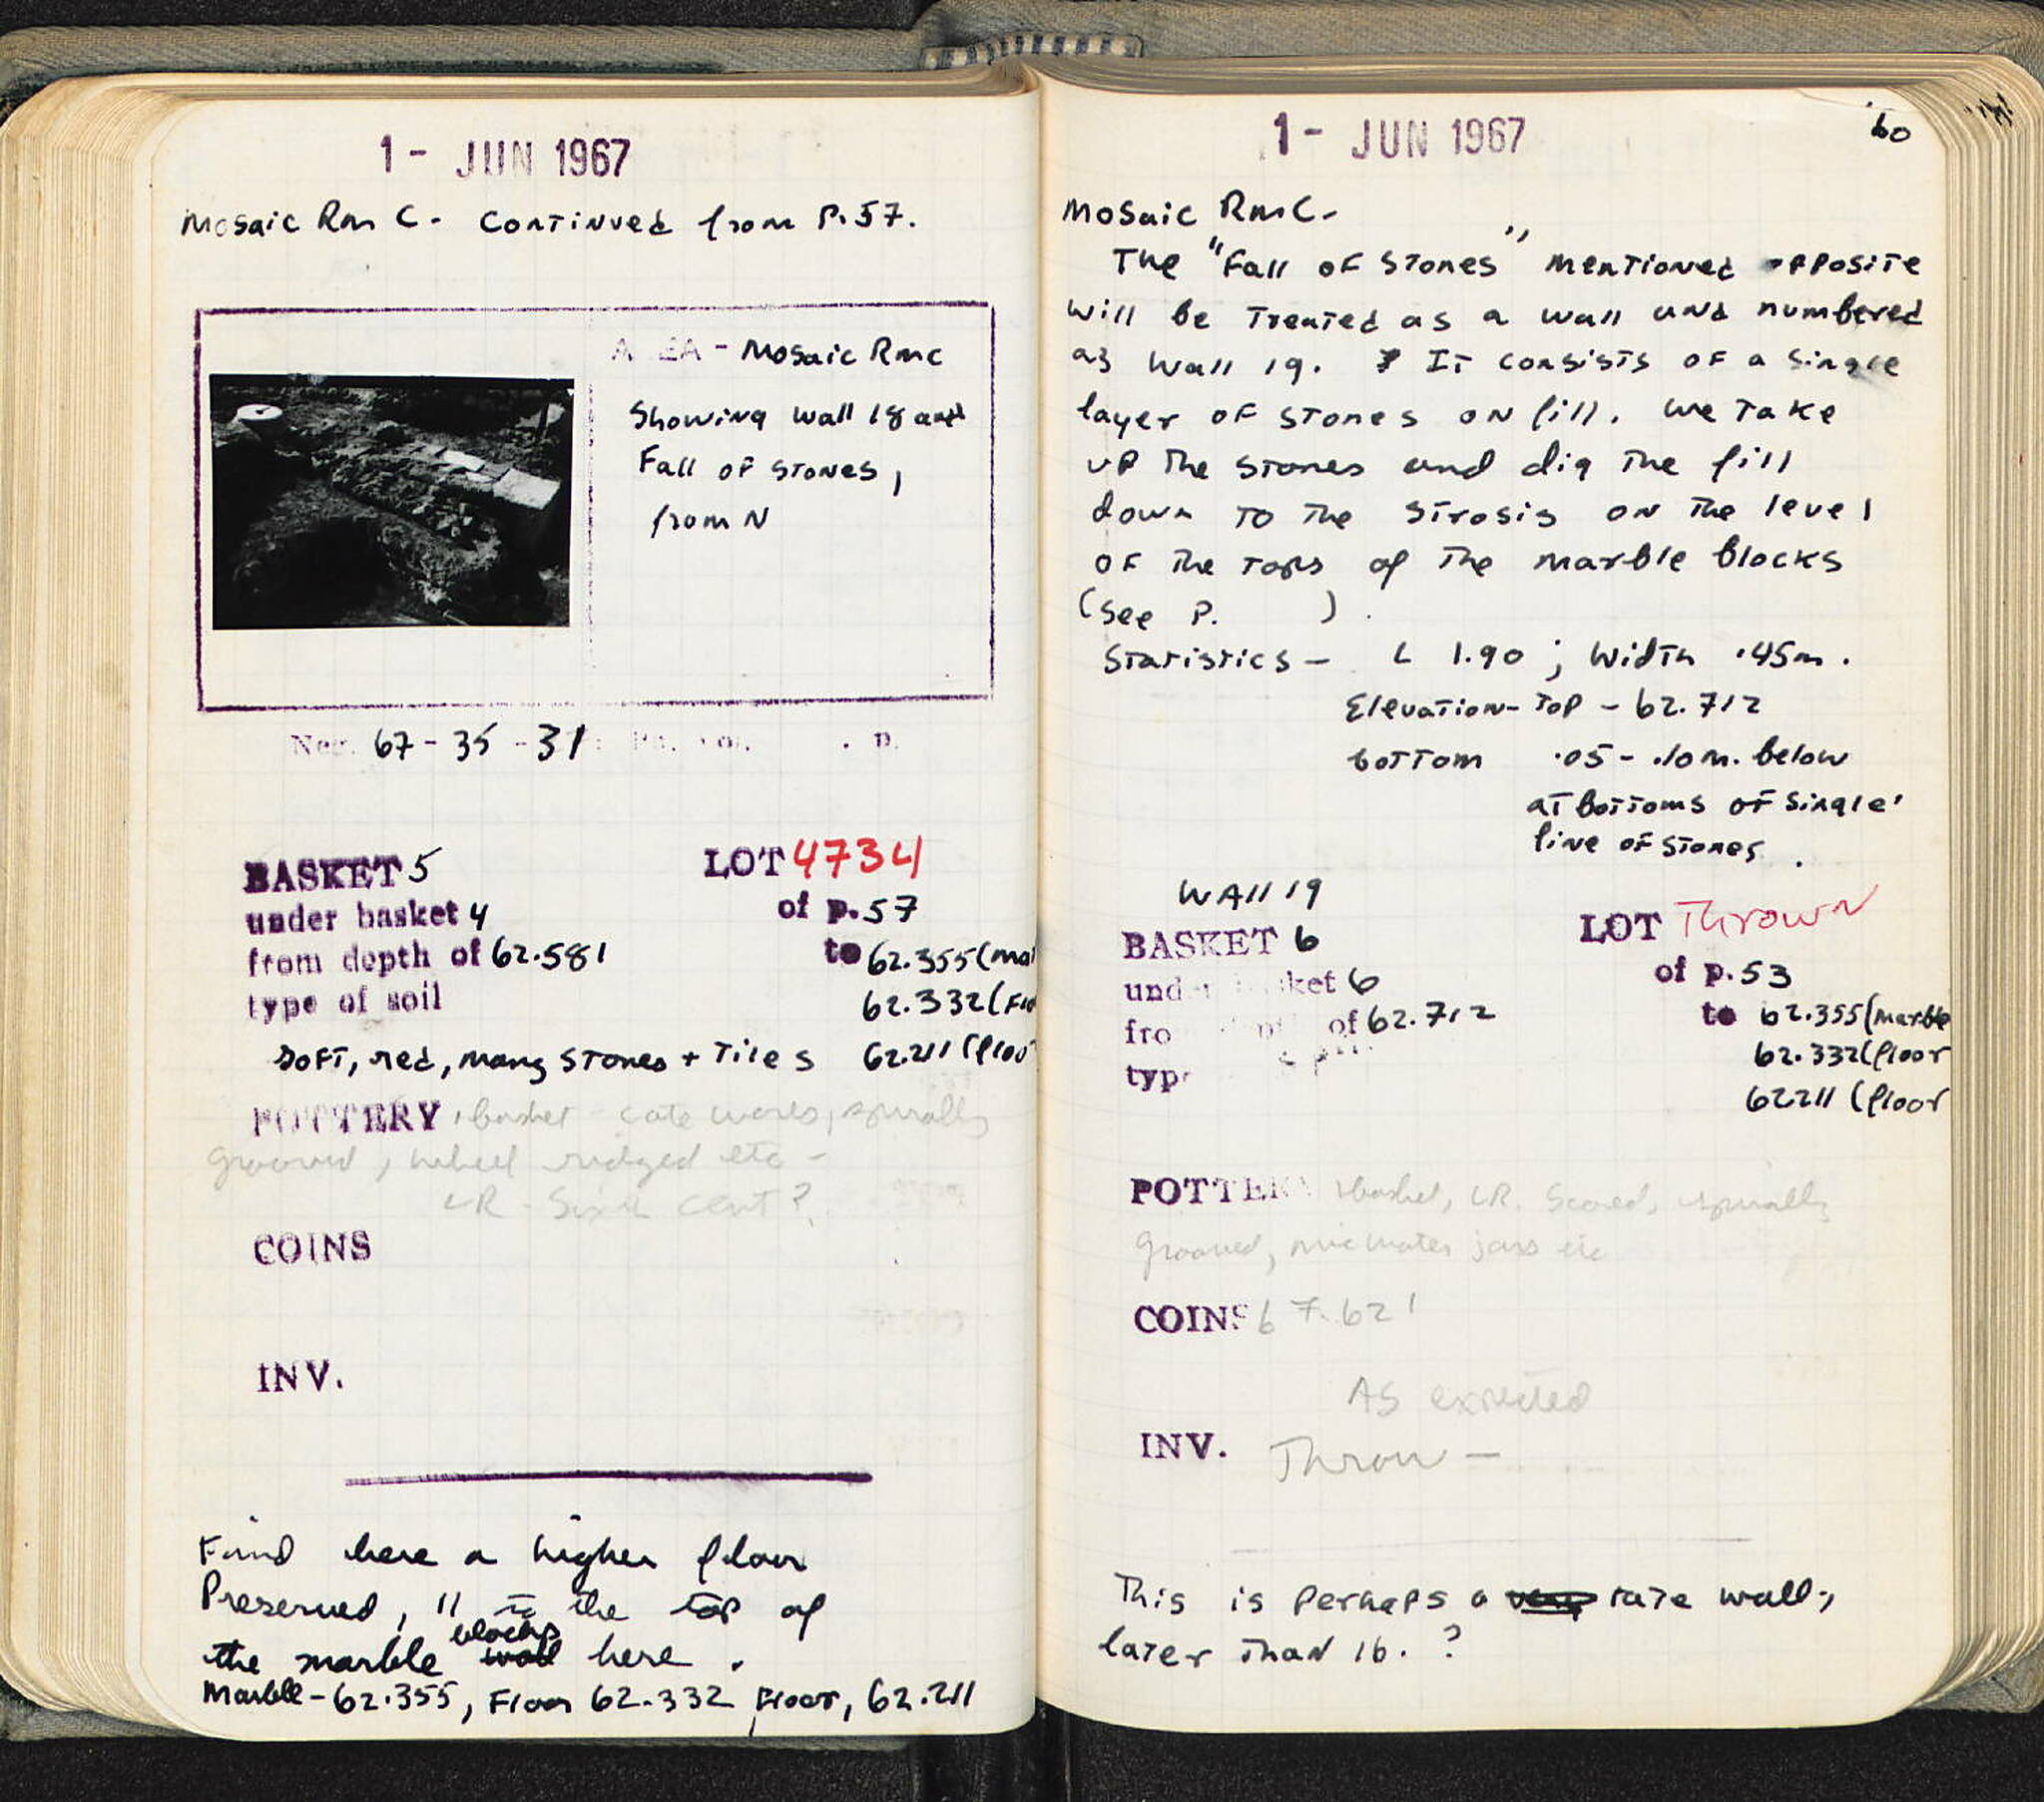 1 - JUN 1967
Mosaic Rm C - Continued from P. 57.
AREA - Mosaic Rm C
Showing Wall 18 and
Fall of stones,
from N
Neg. 67 - 35 - 31
BASKET 5 LOT 4734
under basket 4 of p. 57
from depth of 62.581 to 62.355 (mar
type of soil 62.332 (Flo
Soft, red, many stones + tiles 62.211 (floor
POTTERY 1 basket - coarse wares, spirally
grooved, wheel ridged etc -
LR - Sixth cent?
COINS
INV.
Find here a higher floor
Preserved, to the top of
the marble blocks here.
Marble - 62.355, Floor 62.332 Floor, 62.211
1 - JUN 1967
60
Mosaic Rm C -
The "Fall of Stones" mentioned opposite
will be treated as a wall and numbered
as Wall 19. It consists of a single
layer of stones on fill. We take
up the stones and dig the fill
down to the strosis on the level
of the tops of the marble blocks
(See P. ).
Statistics - L 1.90 ; Width .45m.
Elevation - Top - 62.712
bottom .05 - .10 m. below
at bottoms of single
line of stones.
WAll 19
BASKET 6 LOT Thrown
under basket 6 of p. 53
from depth of 62.712 to 62.355 (marble
type 62.332 (floor
62.211 (floor
POTTERY 1 basket, LR. Scored, spirally
grooved, jars etc
COINS 67.621
As expected
INV. Throw -
This is perhaps a late wall,
later than 16. ?